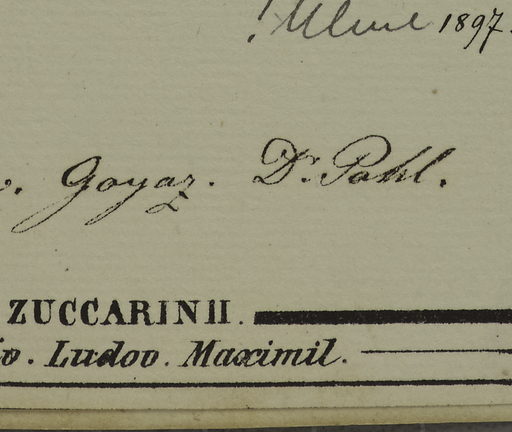 ! Ulme 1897.
v. Goyaz. Dr. Pohl.
ZUCCARINII.
iv. Ludov. Maximil.